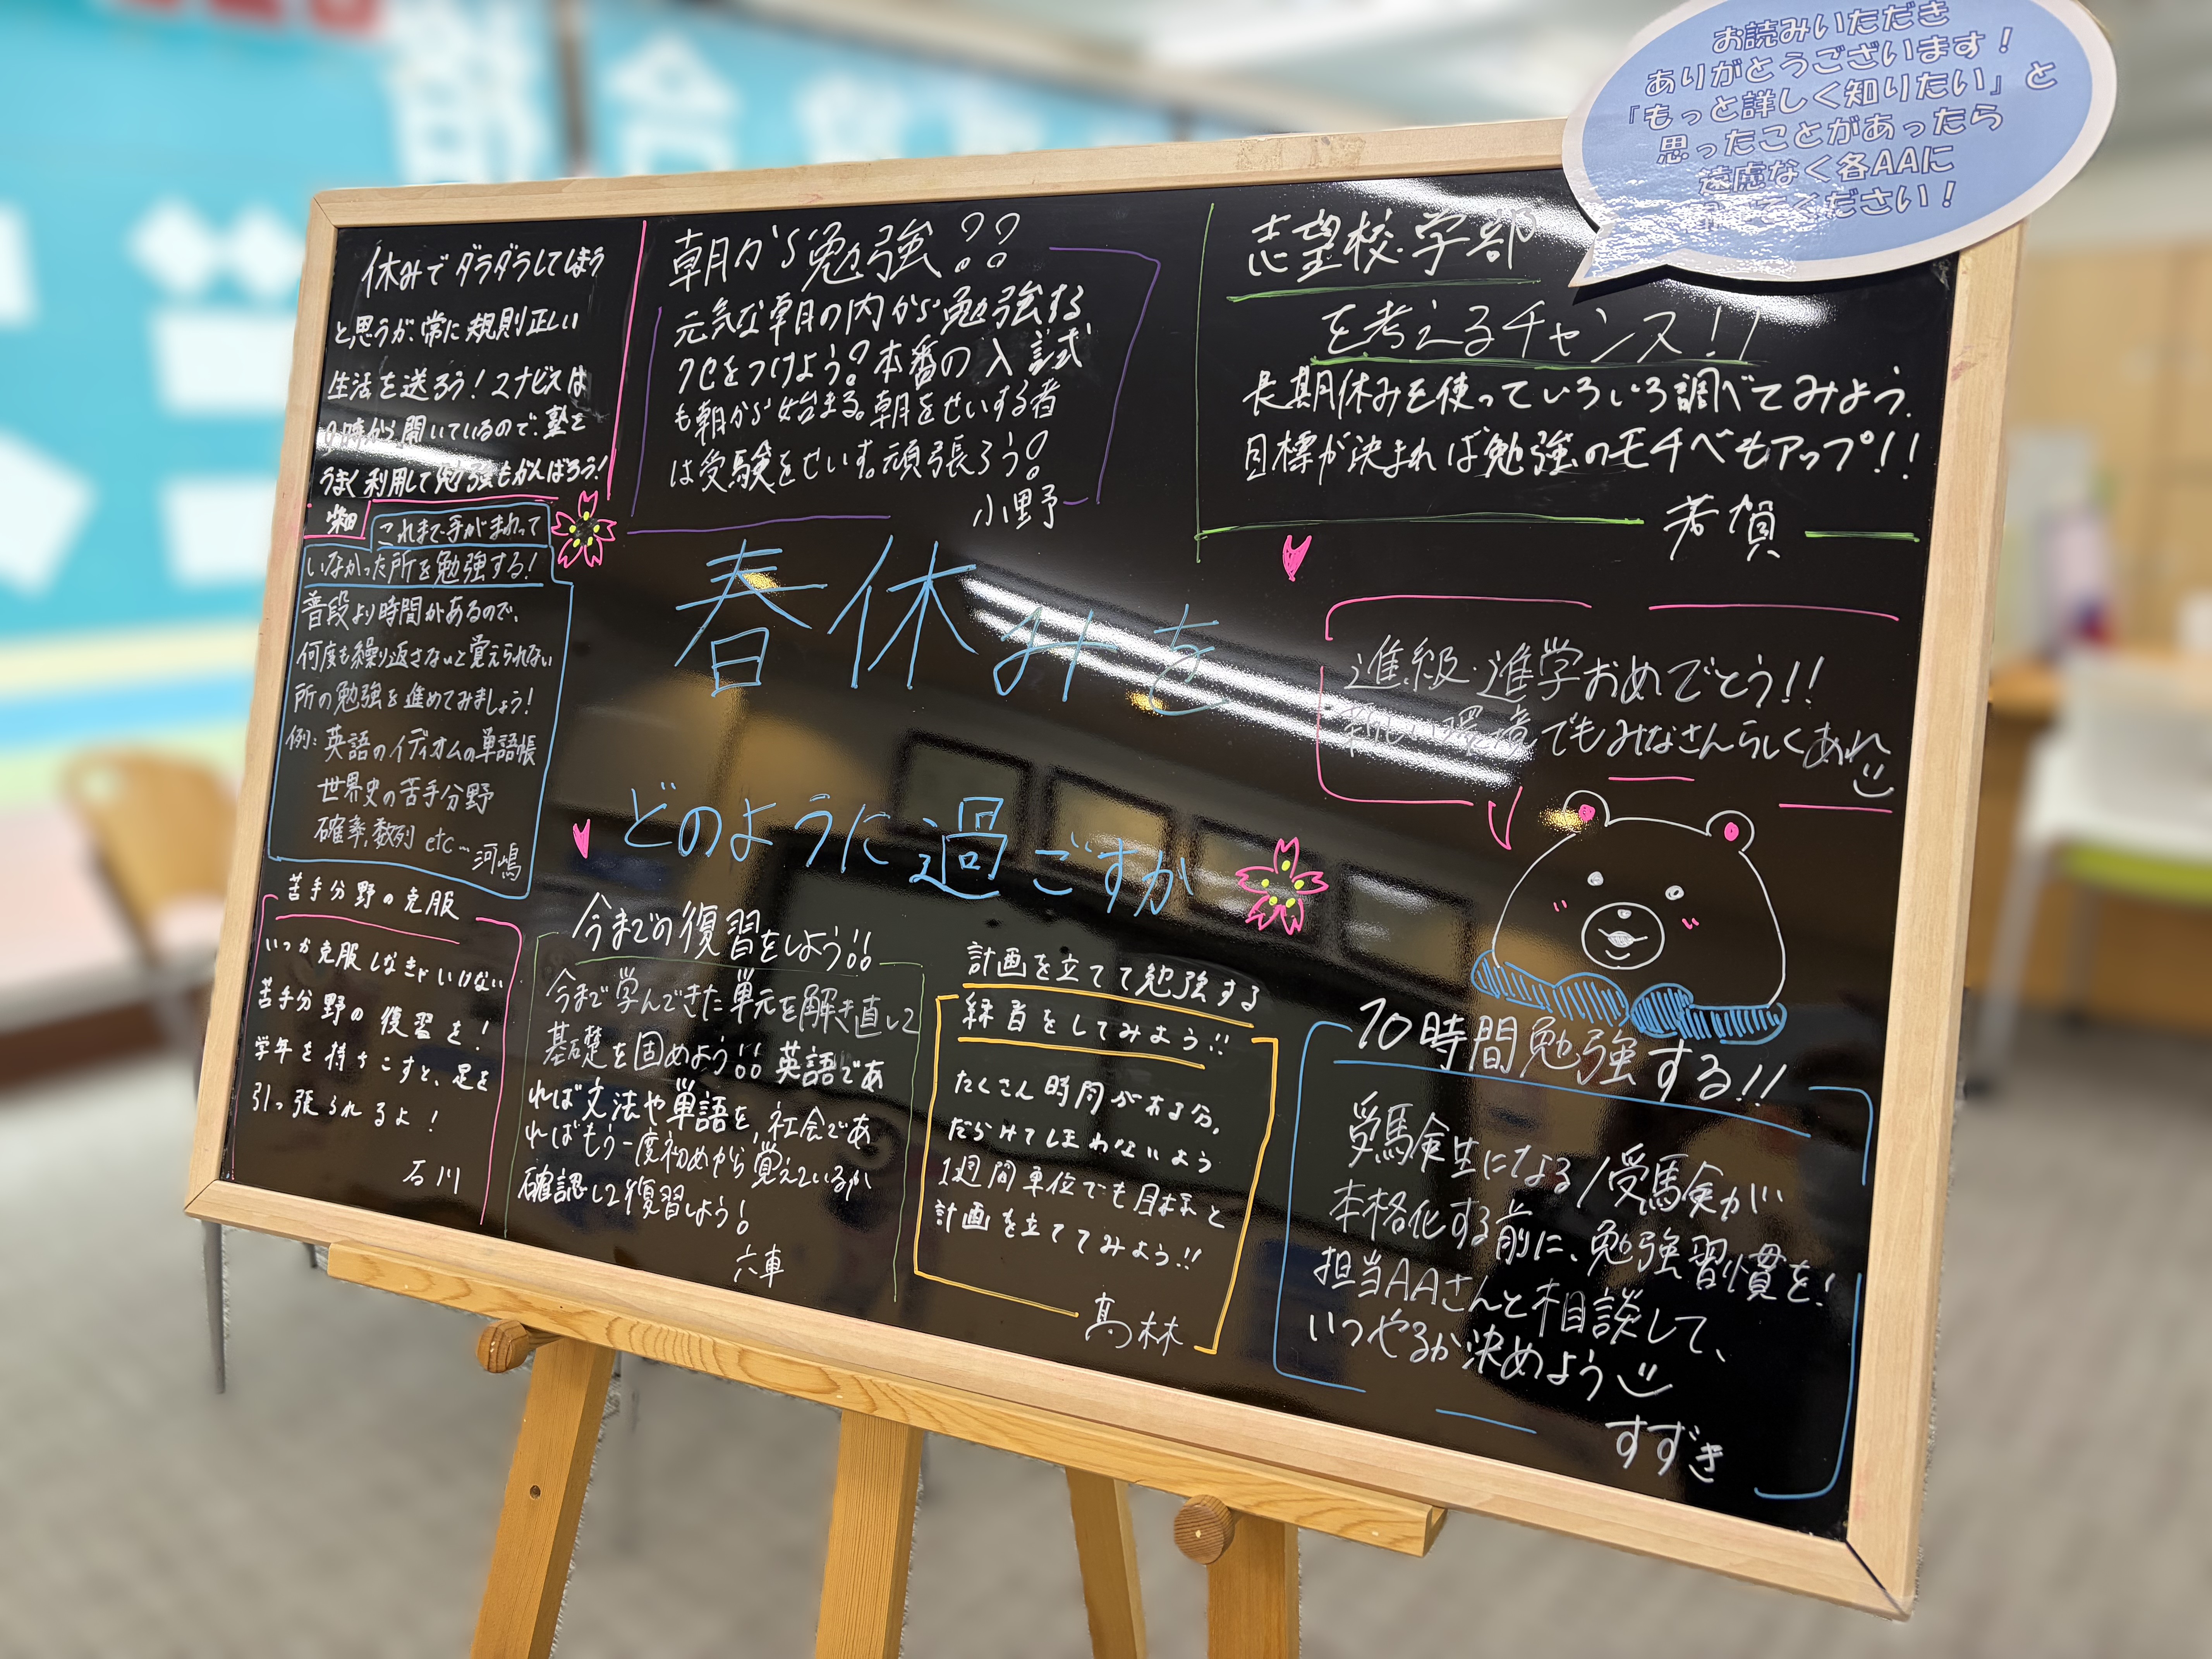 お読みいただき
ありがとうございます！
「もっと詳しく知りたい」と
思ったことがあったら
遠慮なく各AAに
ください！
休みでダラダラしてしまう
と思うが、常に規則正しい
生活を送ろう！マナビスは
時から開いているので、塾を
うまく利用して勉強もがんばろう！
朝から勉強！！
元気な朝の内から勉強する
クセをつけよう！本番の入試
も朝から始まる。朝をせいする者
は受験をせいす。頑張ろう！
小野
志望校・学部
を考えるチャンス！！
長期休みを使っていろいろ調べてみよう。
目標が決まれば勉強のモチベもアップ！！
若賀
これまで手がまわって
いなかった所を勉強する！
普段より時間があるので、
何度も繰り返さないと覚えられない
所の勉強を進めてみましょう！
例：英語のイディオムの単語帳
世界史の苦手分野
確率、数列 etc…
河嶋
春休みを
どのように過ごすか
進級・進学おめでとう！！
新しい環境でもみなさんらしくあれ
苦手分野の克服
いつか克服しなきゃいけない
苦手分野の復習を！
学年を持ちこすと、足を
引っ張られるよ！
石川
今までの復習をしよう！！
今まで学んできた単元を解き直して
基礎を固めよう！！英語であ
れば文法や単語を、社会であ
ればもう一度初めから覚えているか
確認して復習しよう！
六車
計画を立てて勉強する
練習をしてみよう！！
たくさん時間がある分、
だらけてしまわないよう
1週間単位でも目標と
計画を立ててみよう！！
髙林
10時間勉強する！！
受験生になる/受験が
本格化する前に、勉強習慣を！
担当AAさんと相談して、
いつやるか決めよう
すずき